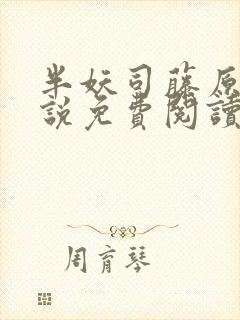 半妖司藤原
說免費閱讀
周育琴